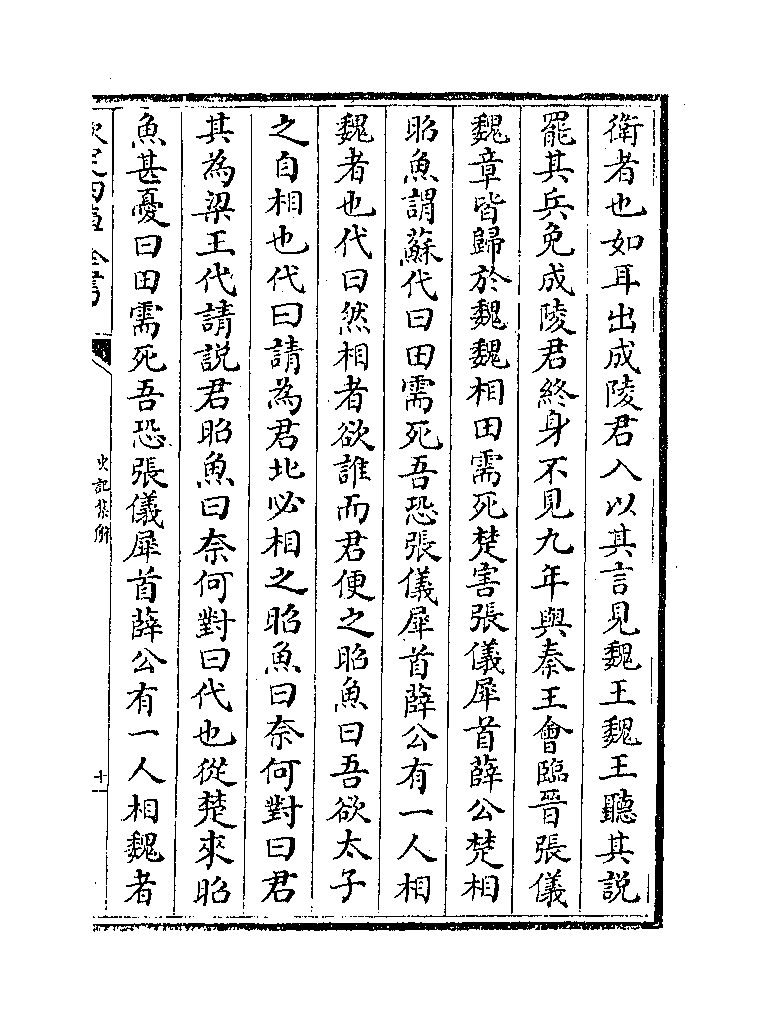 衛者也如耳出成陵君入以其言見魏王魏王聽其說
罷其兵免成陵君終身不見九年與秦王會臨晉張儀
魏章皆歸於魏魏相田需死楚害張儀犀首薛公楚相
昭魚謂蘇代曰田需死吾恐張儀犀首薛公有一人相
魏者也代曰然相者欲誰而君便之昭魚曰吾欲太子
之自相也代曰請為君北必相之昭魚曰奈何對曰君
其為梁王代請說君昭魚曰奈何對曰代也從楚來昭
魚甚憂曰田需死吾恐張儀犀首薛公有一人相魏者
史記集解
十一